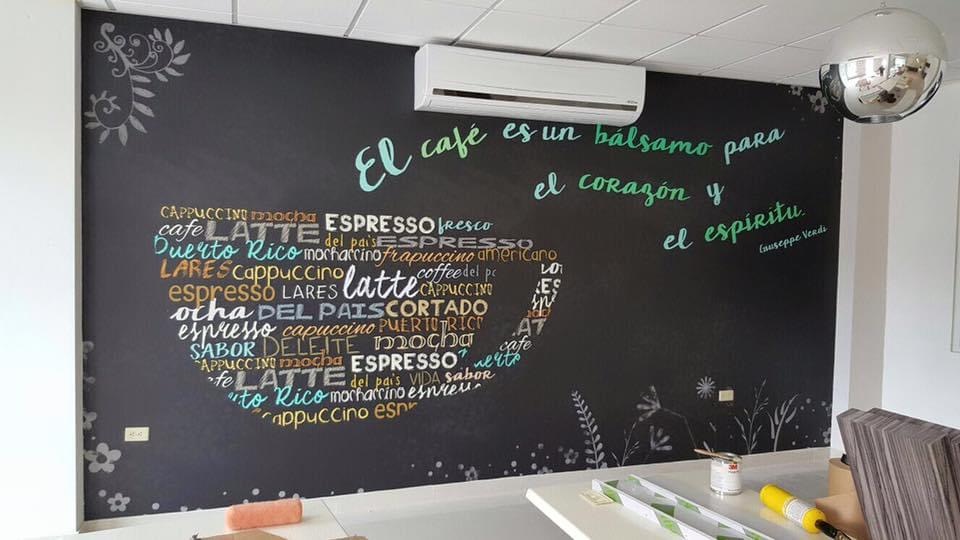 El café es un bálsamo para
el corazón y
el espíritu.
Giuseppe Verdi
CAPPUCCINO mocha ESPRESSO fresco
cafe LATTE del país ESPRESSO
Puerto Rico mochaccino frapuccino americano
LARES cappuccino latte coffee del pc
espresso LARES CAPPUCCINO
ocha DEL PAIS CORTADO
espresso capuccino PUERTO RICO
SABOR DELEITE mocha
CAPPUCCINO mocha ESPRESSO Puerto
cafe LATTE del país VIDA sabor
Puerto Rico mochaccino espresso
cappuccino espr
LO
ES
ESPR
LAT
cafe
3M